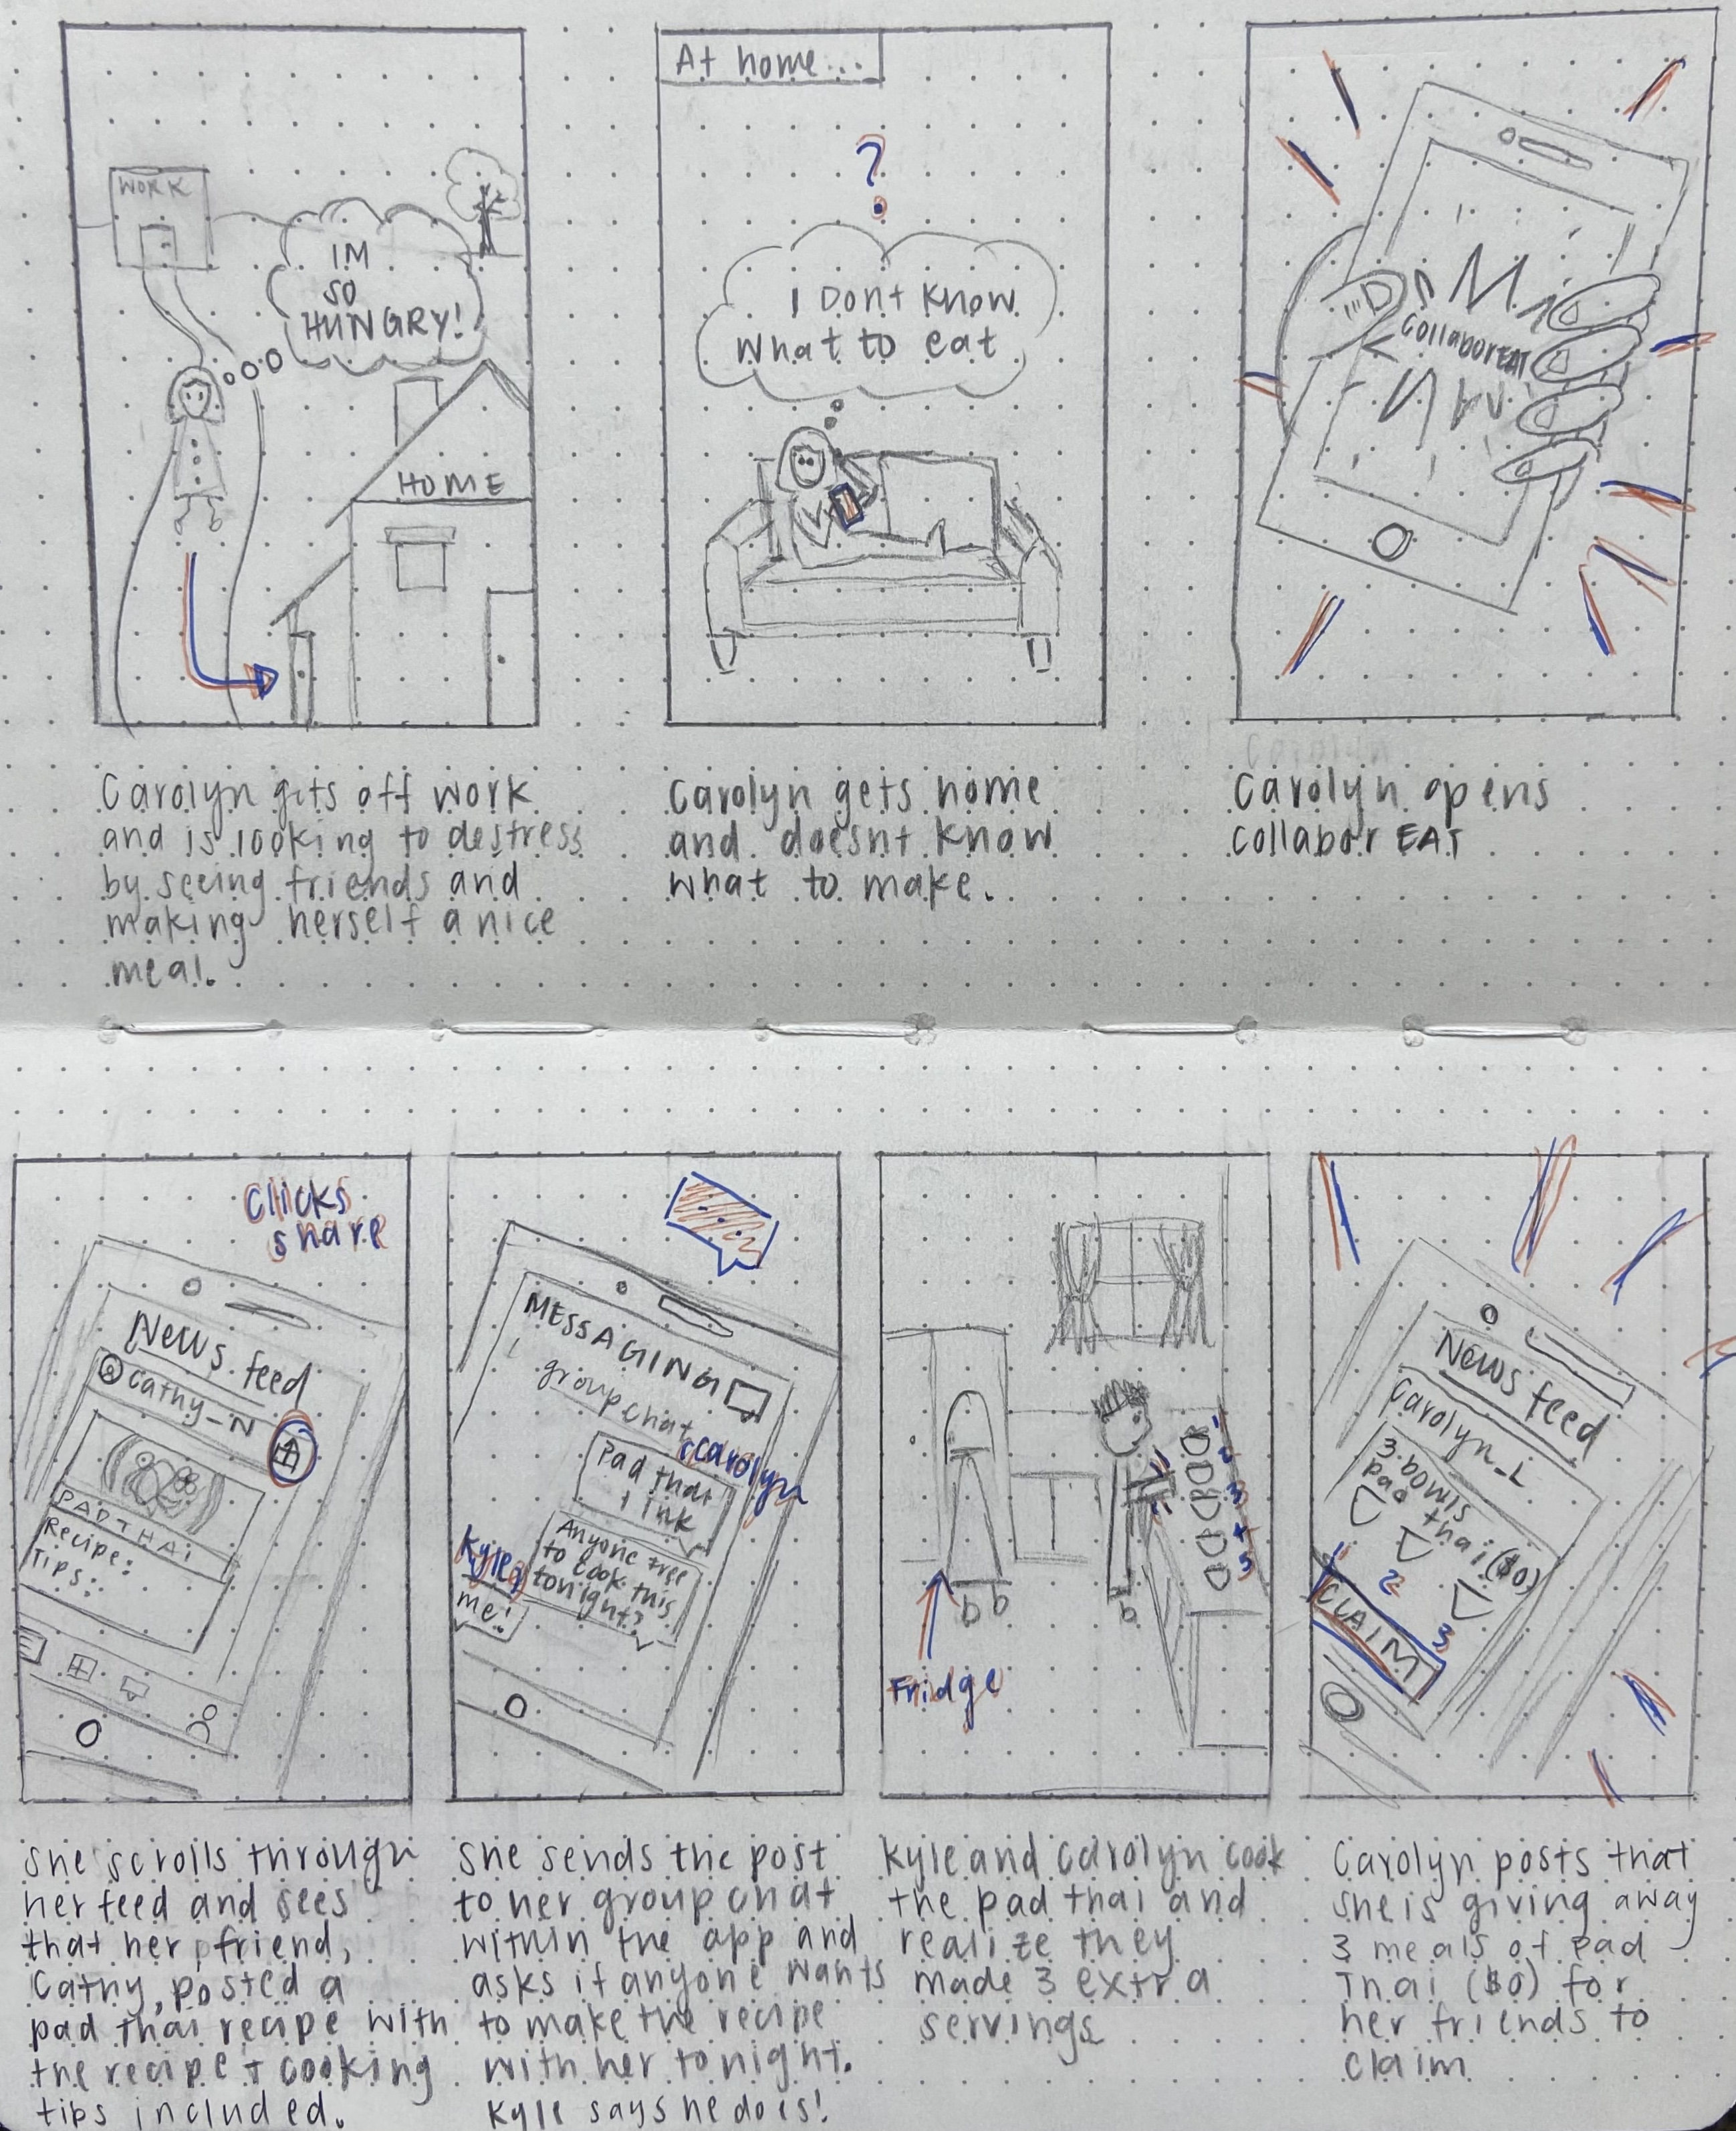 WORK
IM
SO
HUNGRY!
HOME
Carolyn gets off work
and is looking to destress
by seeing friends and
making herself a nice
meal.
At home...
?
I Dont know
what to eat
Carolyn gets home
and doesnt know
what to make.
CollaborEAT
Carolyn opens
CollaborEAT
Clicks
share
News feed
Cathy_N
PADTHAI
Recipe:
Tips:
She scrolls through
her feed and sees
that her friend,
Cathy, posted a
pad thai recipe with
the recipe + cooking
tips included.
MESSAGING
group chat
Carolyn
Pad thai
link
Anyone free
to cook this
tonight?
Kyle
me!
She sends the post
to her group chat
within the app and
asks if anyone wants
to make the recipe
with her tonight.
Kyle says he does!
1
2
3
4
5
Fridge
Kyle and Carolyn cook
the pad thai and
realize they
made 3 extra
servings
News feed
Carolyn_L
3 bowls
pad thai ($0)
1
2
3
CLAIM
Carolyn posts that
she is giving away
3 meals of Pad
Thai ($0) for
her friends to
claim